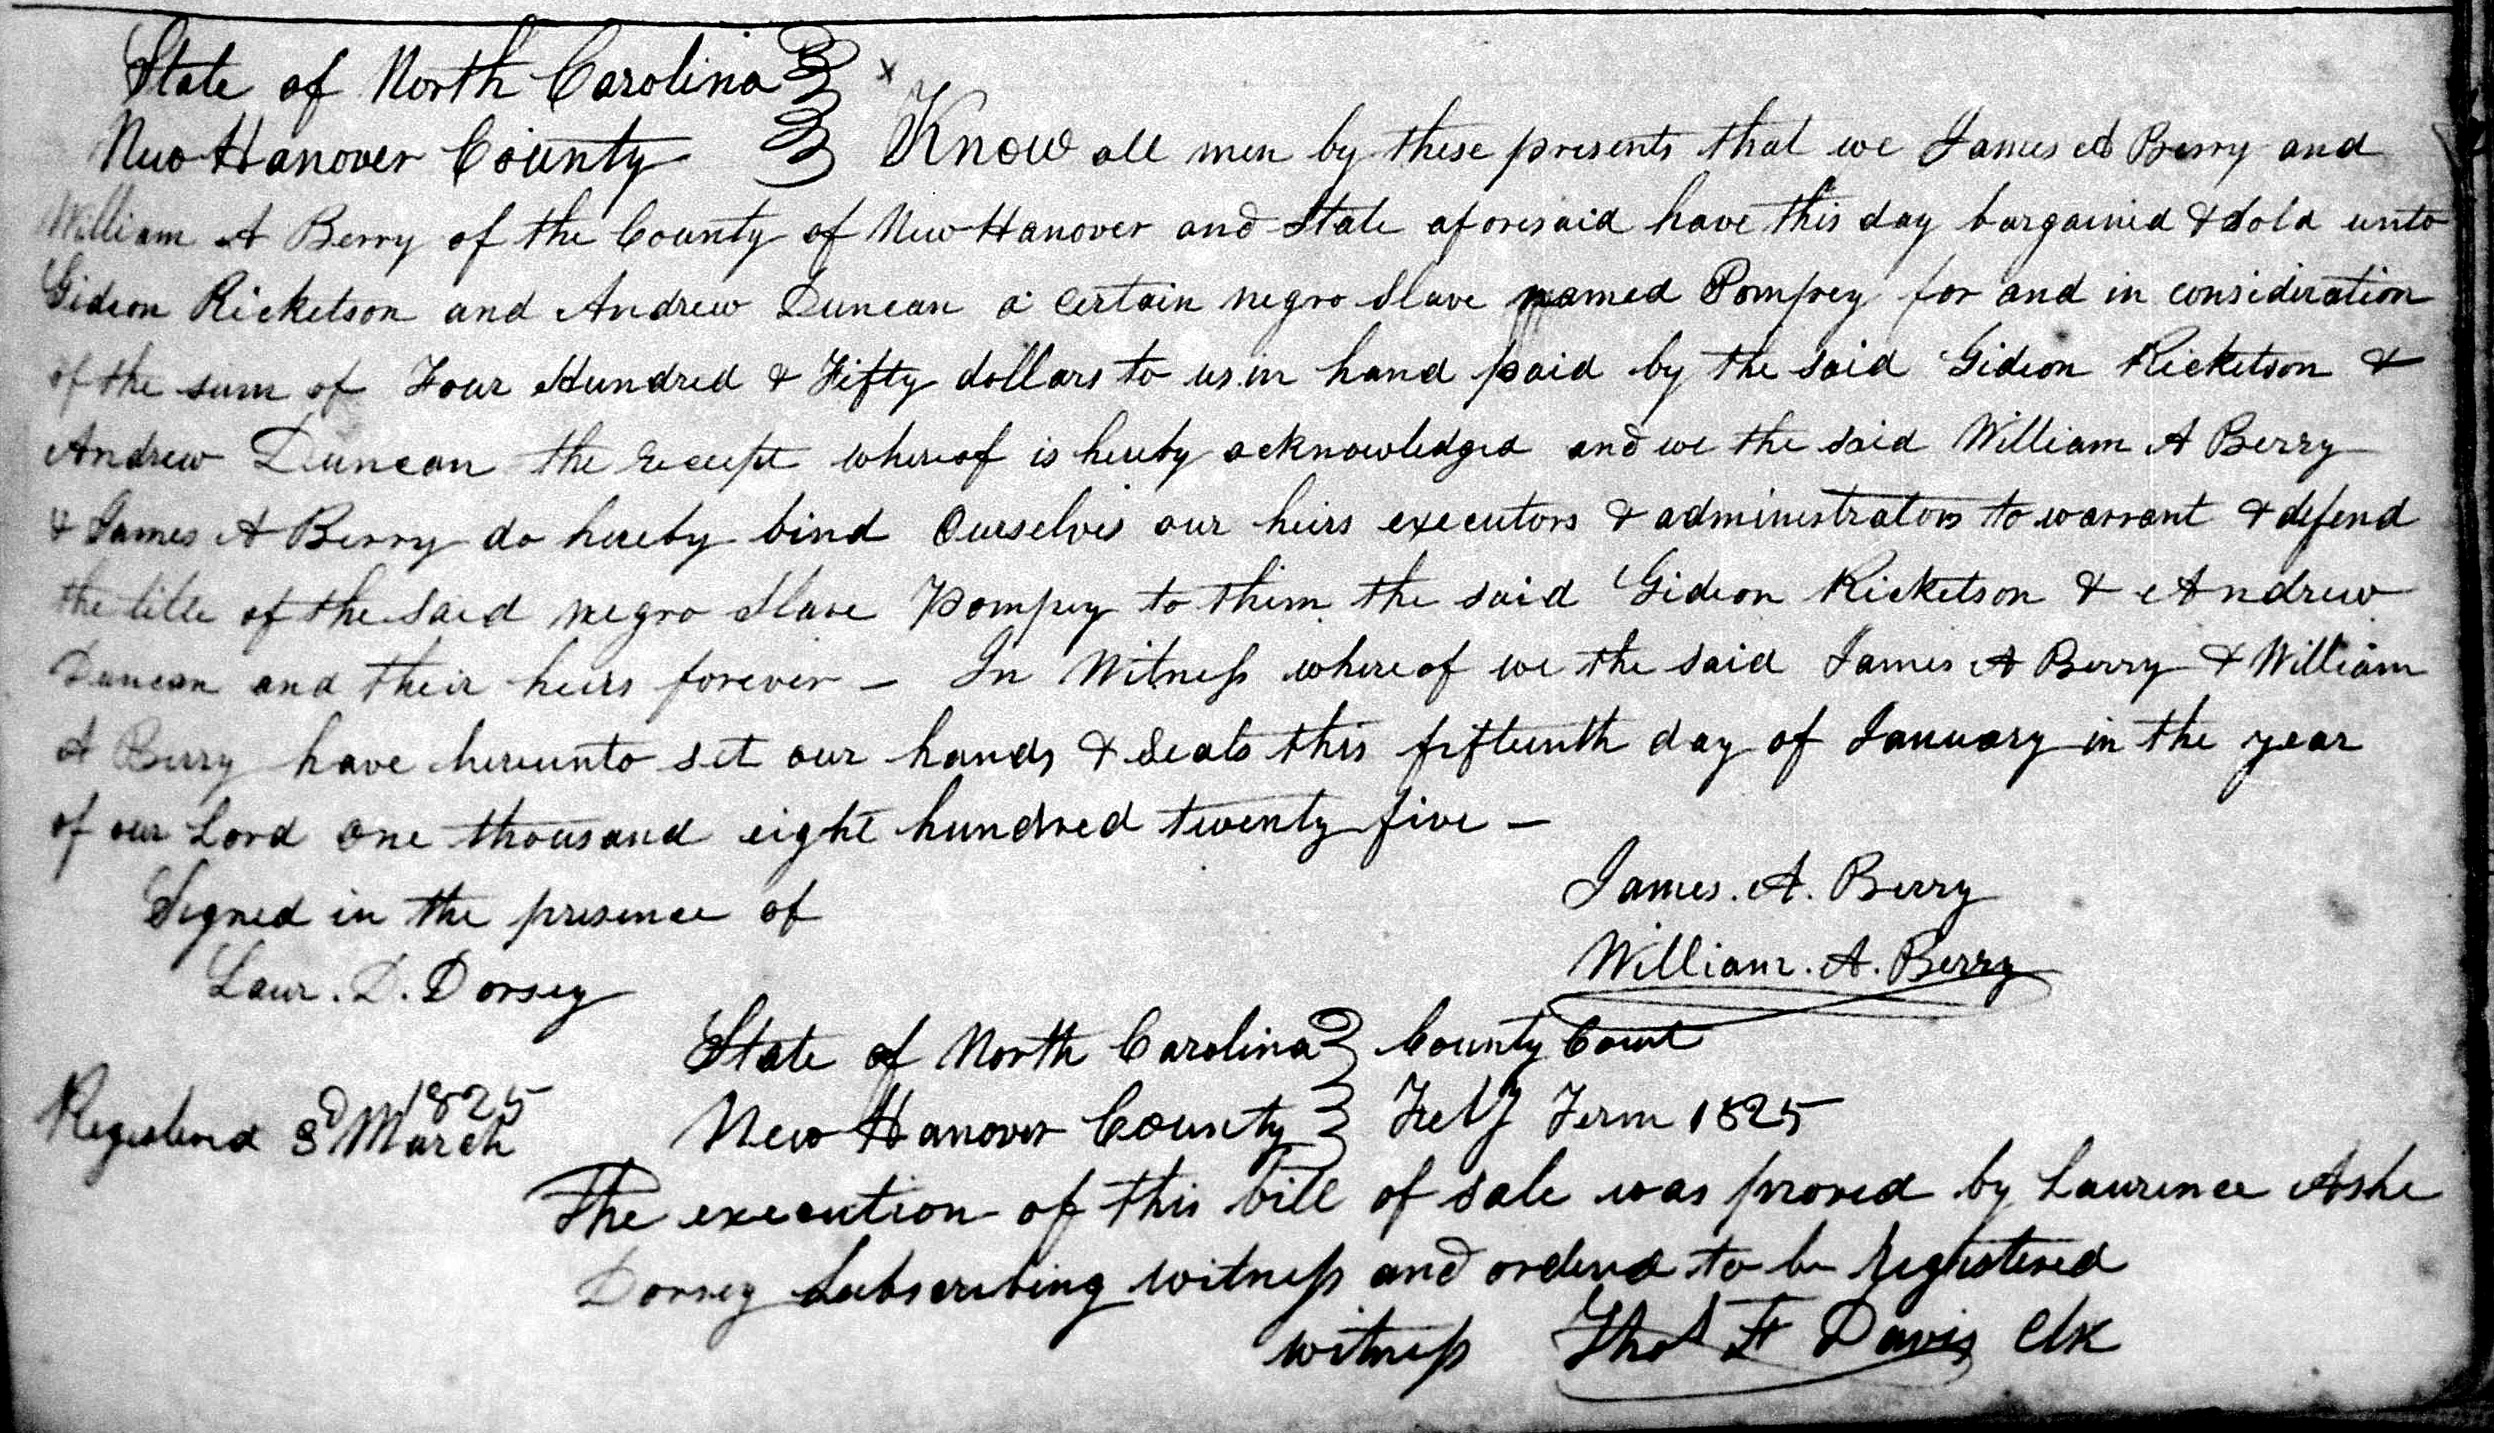 State of North Carolina x
New Hanover County Know all men by these presents that we James A Berry and
William A Berry of the County of New Hanover and State aforesaid have this day bargained & Sold unto
Gideon Ricketson and Andrew Duncan a certain negro Slave named Pompey for and in consideration
of the sum of Four Hundred & Fifty dollars to us in hand paid by the said Gideon Ricketson &
Andrew Duncan the receipt whereof is hereby acknowledged and we the said William A Berry
& James A Berry do hereby bind Ourselves our heirs executors & administrators to warrant & defend
the title of the said negro Slave Pompey to them the said Gideon Ricketson & Andrew
Duncan and their heirs forever - In Witness whereof we the said James A Berry & William
A Berry have hereunto set our hands & Seals this fifteenth day of January in the year
of our Lord one thousand eight hundred twenty five -
James. A. Berry
Signed in the presence of
William. A. Berry
Laur. D. Dorsey
State of North Carolina County Court
New Hanover County Feby Term 1825
Registered 3d March 1825
The execution of this bill of sale was proved by Laurence Ashe
Dorsey Subscribing witness and ordered to be registered
witness Thos F Davis Clk